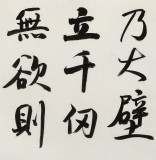 乃大壁
立千仞
無欲則